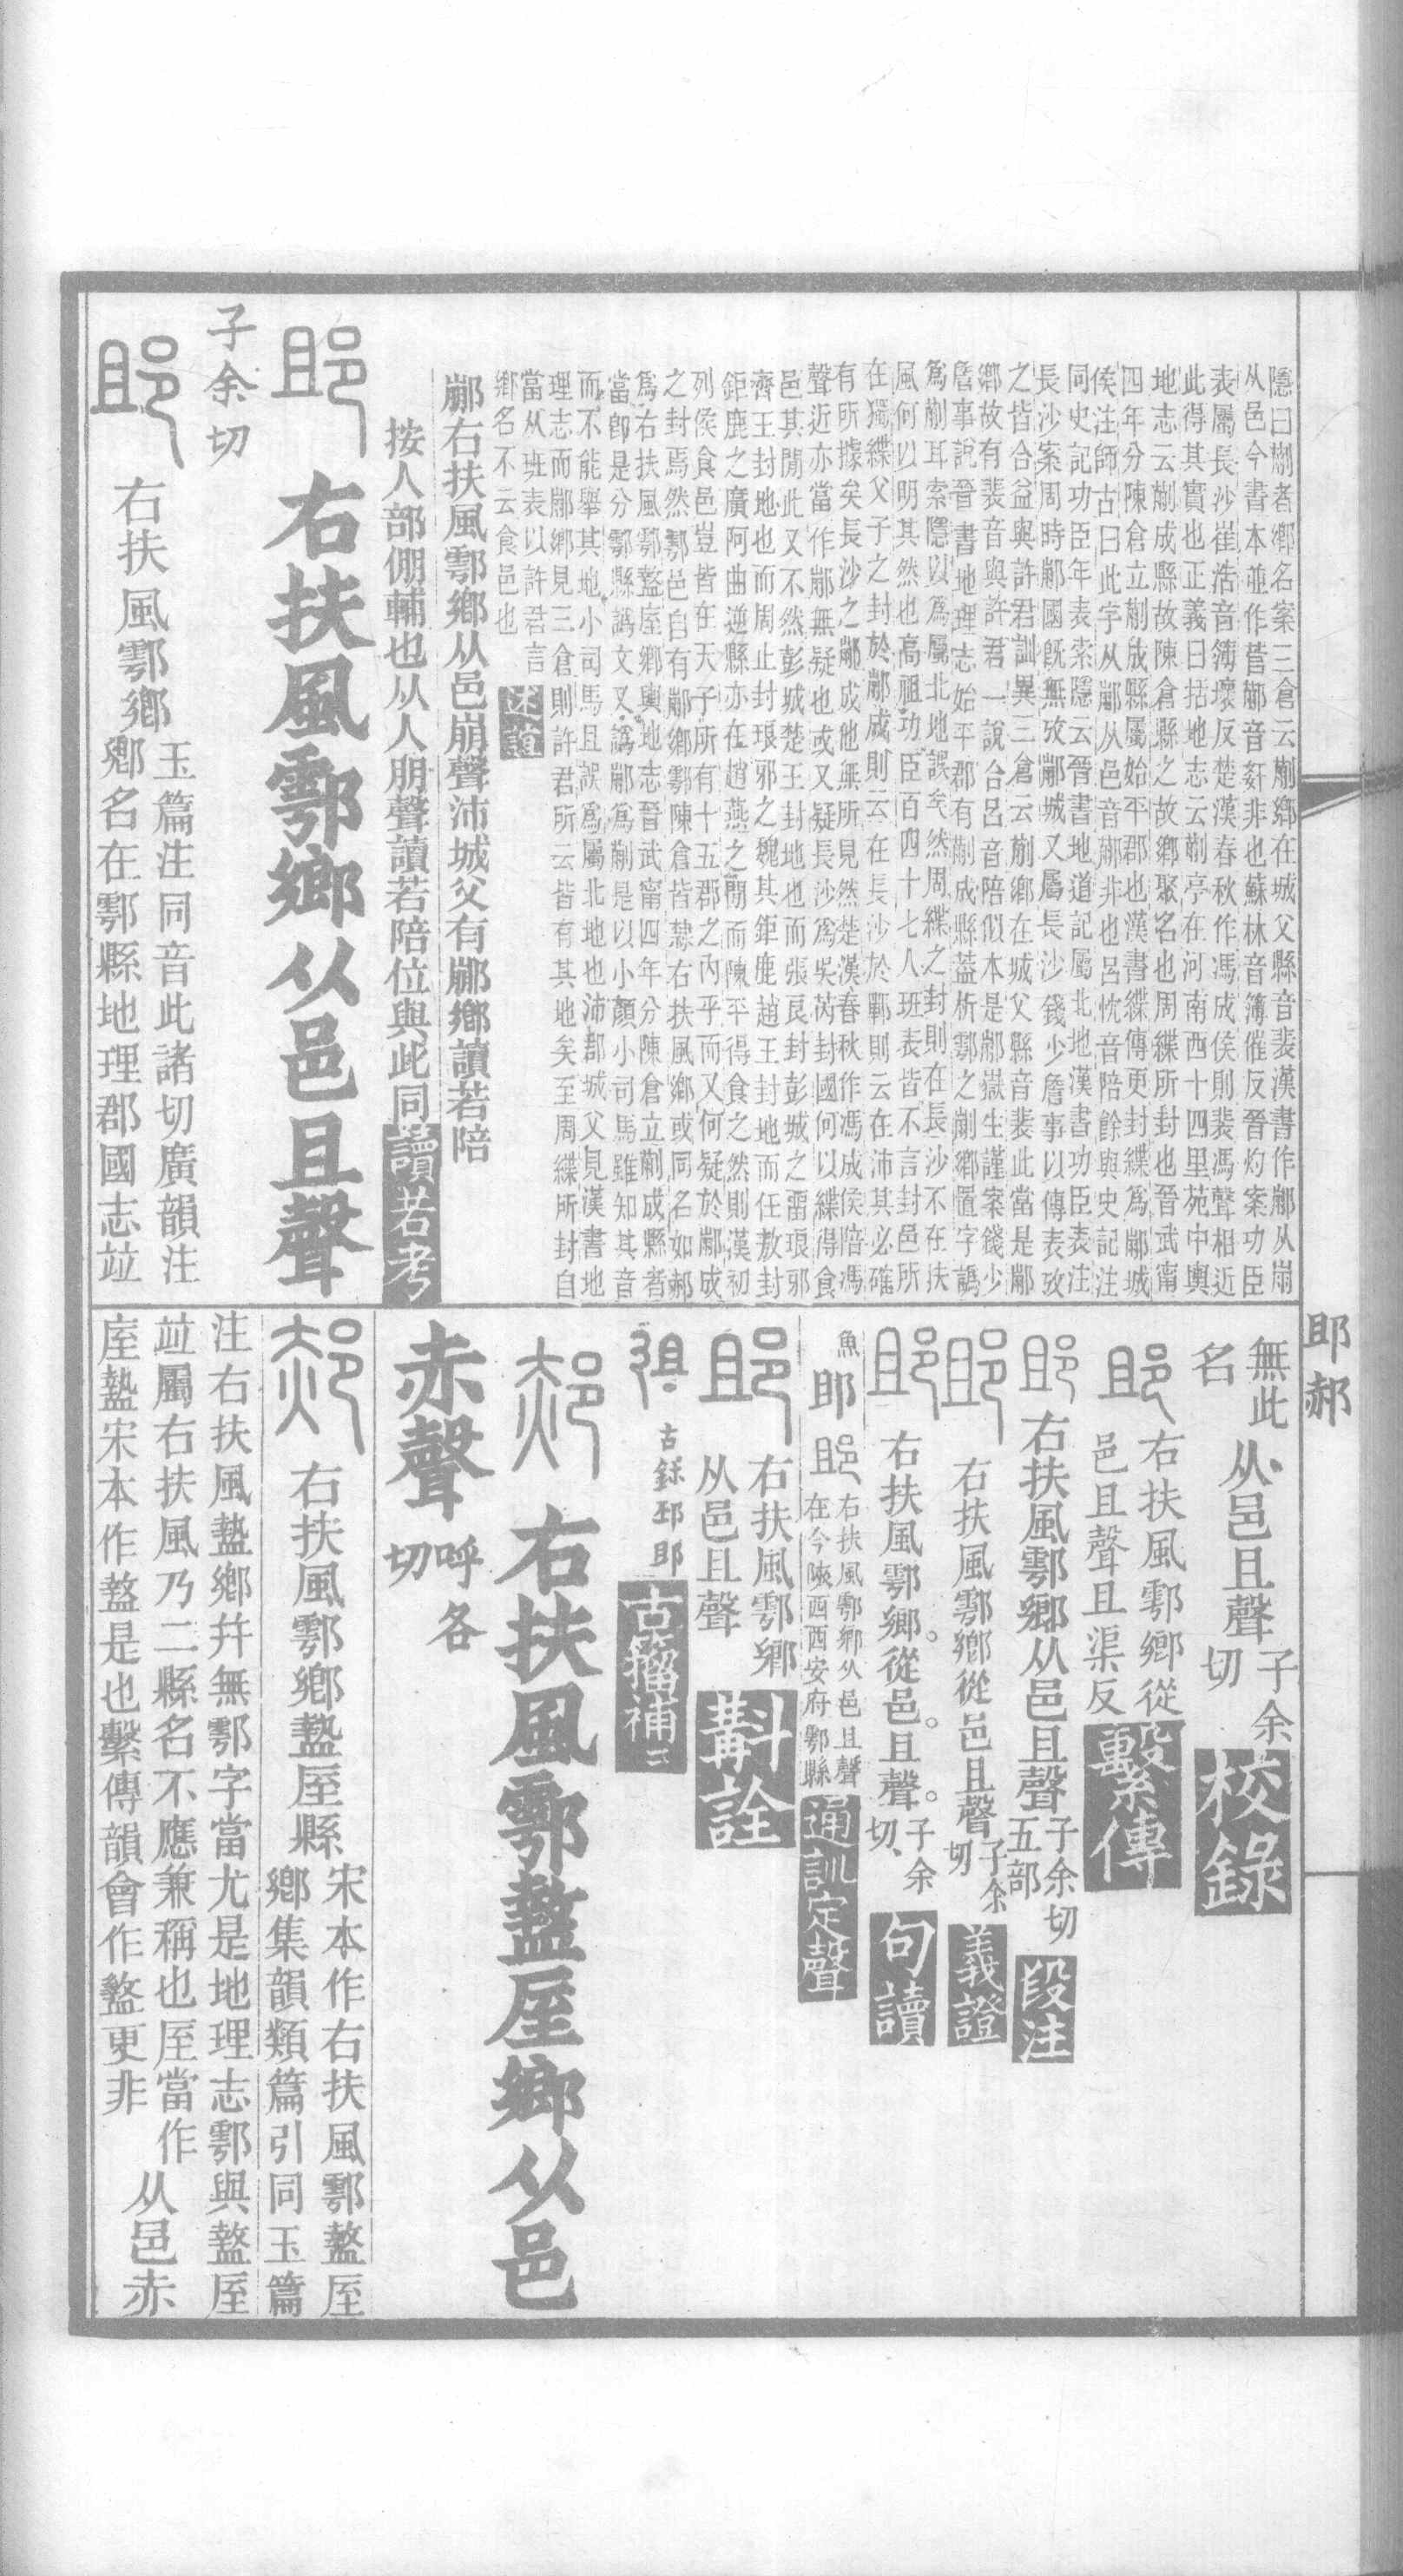 隱曰蒯者鄉名案三倉云蒯鄉在城父縣音裴漢書作䣙从崩
从邑今書本並作菅䣙音姧非也蘇林音簿催反晉灼案功臣
表屬長沙崔浩音簿壞反楚漢春秋作馮成侯則裴馮聲相近
此得其實也正義曰括地志云蒯亭在河南西十四里苑中輿
地志云蒯成縣故陳倉縣之故鄉聚名也周緤所封也晉武甯
四年分陳倉立蒯成縣屬始平郡也漢書緤傳更封緤爲䣙城
侯注師古曰此字从䣙从邑音䣙非也呂忱音陪餘與史記注
同史記功臣年表索隱云晉書地道記屬北地漢書功臣表注
長沙案周時䣙國旣無攷䣙城又屬長沙錢少詹事以傳表攷
之皆合益與許君訓異三倉云蒯鄉在城父縣音裴此當是䣙
鄉故有裴音與許君一說合呂音陪似本是䣙嶽生謹案錢少
詹事說晉書地理志始平郡有蒯成縣蓋析鄠之蒯鄉置字譌
爲蒯耳索隱以爲屬北地誤矣然周緤之封則在長沙不在扶
風何以明其然也高祖功臣百四十七人班表皆不言封邑所
在獨緤父子之封於䣙成則云在長沙於鄲則云在沛其必確
有所據矣長沙之䣙成他無所見然楚漢春秋作馮成侯陪馮
聲近亦當作䣙無疑也或又疑長沙爲吳芮封國何以緤得食
邑其閒此又不然彭城楚王封地也而張良封彭城之畱琅邪
齊王封地也而周止封琅邪之魏其鉅鹿趙王封地而任敖封
鉅鹿之廣阿曲逆縣亦在趙燕之閒而陳平得食之然則漢初
列侯食邑豈皆在天子所有十五郡之內乎而又何疑於䣙成
之封焉然鄠邑自有䣙鄉鄠陳倉皆隸右扶風鄉或同名如郝
爲右扶風鄠盩厔鄉輿地志晉武甯四年分陳倉立蒯成縣者
當卽是分鄠縣譌文又譌䣙爲蒯是以小顏小司馬雖知其音
而不能舉其地小司馬且誤爲屬北地也沛郡城父見漢書地
理志而䣙鄉見三倉則許君所云皆有其地矣至周緤所封自
當从班表以許君言
鄉名不云食邑也 述誼
䣙右扶風鄠鄉从邑崩聲沛城父有䣙鄉讀若陪
按人部倗輔也从人朋聲讀若陪位與此同 讀若考
右扶風鄠鄉从邑且聲
子余切
右扶風鄠鄉
玉篇注同音此諸切廣韻注
鄉名在鄠縣地理郡國志竝
䣝郝
無此
名
从邑且聲
子余
切
校錄
右扶風鄠鄉從
邑且聲且渠反
繫傳
右扶風鄠鄉从邑且聲
子余切
五部
段注
右扶風鄠鄉從邑且聲
子余
切
義證
右扶風鄠鄉。從邑。且聲。
子余
切、
句讀
魚 䣝
右扶風鄠鄉从邑且聲
在今陝西西安府鄠縣
通訓定聲
右扶風鄠鄉
从邑且聲
斠詮
古鉨邳䣝
古籀補二
右扶風鄠盩厔鄉从邑
赤聲
呼各
切
右扶風鄠鄉盩厔縣
宋本作右扶風鄠盩厔
鄉集韻類篇引同玉篇
注右扶風盩鄉幷無鄠字當尤是地理志鄠與盩厔
竝屬右扶風乃二縣名不應兼稱也厔當作
庢盩宋本作盩是也繫傳韻會作盩更非
从邑赤